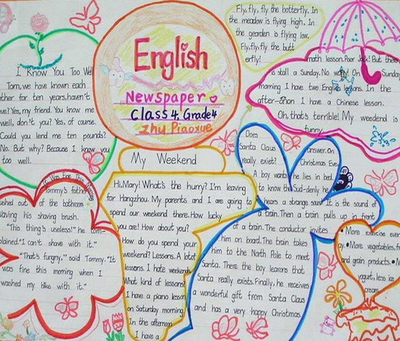 English
Newspaper
Class 4, Grade 4
Zhu Piaoxue
I Know You Too Well
Tom, we have known each
other for ten years, haven't
we? Yes, my friend. You know me
well, don't you? Yes, of course.
Could you lend me ten pounds?
No. But why? Because I know you
too well.
Fly, fly, fly the butterfly. In the
meadow is flying high. In the
garden is flying low,
Fly, fly, fly the butt
erfly!
math lesson. Poor Jack! But there
is still a Sunday. No, why? On Sunday
morning I have two English lessons. In the
afternoon I have a Chinese lesson.
Oh, that's terrible! My weekend is
funny.
Tommy's father
rushed out of the bathroom
waving his shaving brush.
"This thing's useless!" he com-
plained. "I can't shave with it."
"That's funny," said Tommy. "It
was fine this morning when I
washed my bike with it."
My Weekend
Hi, Mary! What's the hurry? I'm leaving
for Hangzhou. My parents and I are going to
spend our weekend there. How lucky
you are! How about you?
How do you spend your
weekend? Lessons. A lot of
lessons. I hate weekends.
What kind of lessons?
I have a piano lesson
on Saturday morning.
In the afternoon
I have a
Does
Santa Claus
really exist?
A boy wants
to know the
answer. On
Christmas Eve,
he lies in bed.
Suddenly he
hears a strange sound. It is the sound of
a train. Then a train pulls up in front
of a train. The conductor invites
him on board. The train takes
him to the North Pole to meet
Santa. There the boy leaves that
Santa really exists. Finally, he receives
a wonderful gift from Santa Claus
and has a very happy Christmas
More exercise every
More vegetables, fruit
and grain products.
yogurt, less ice
cream